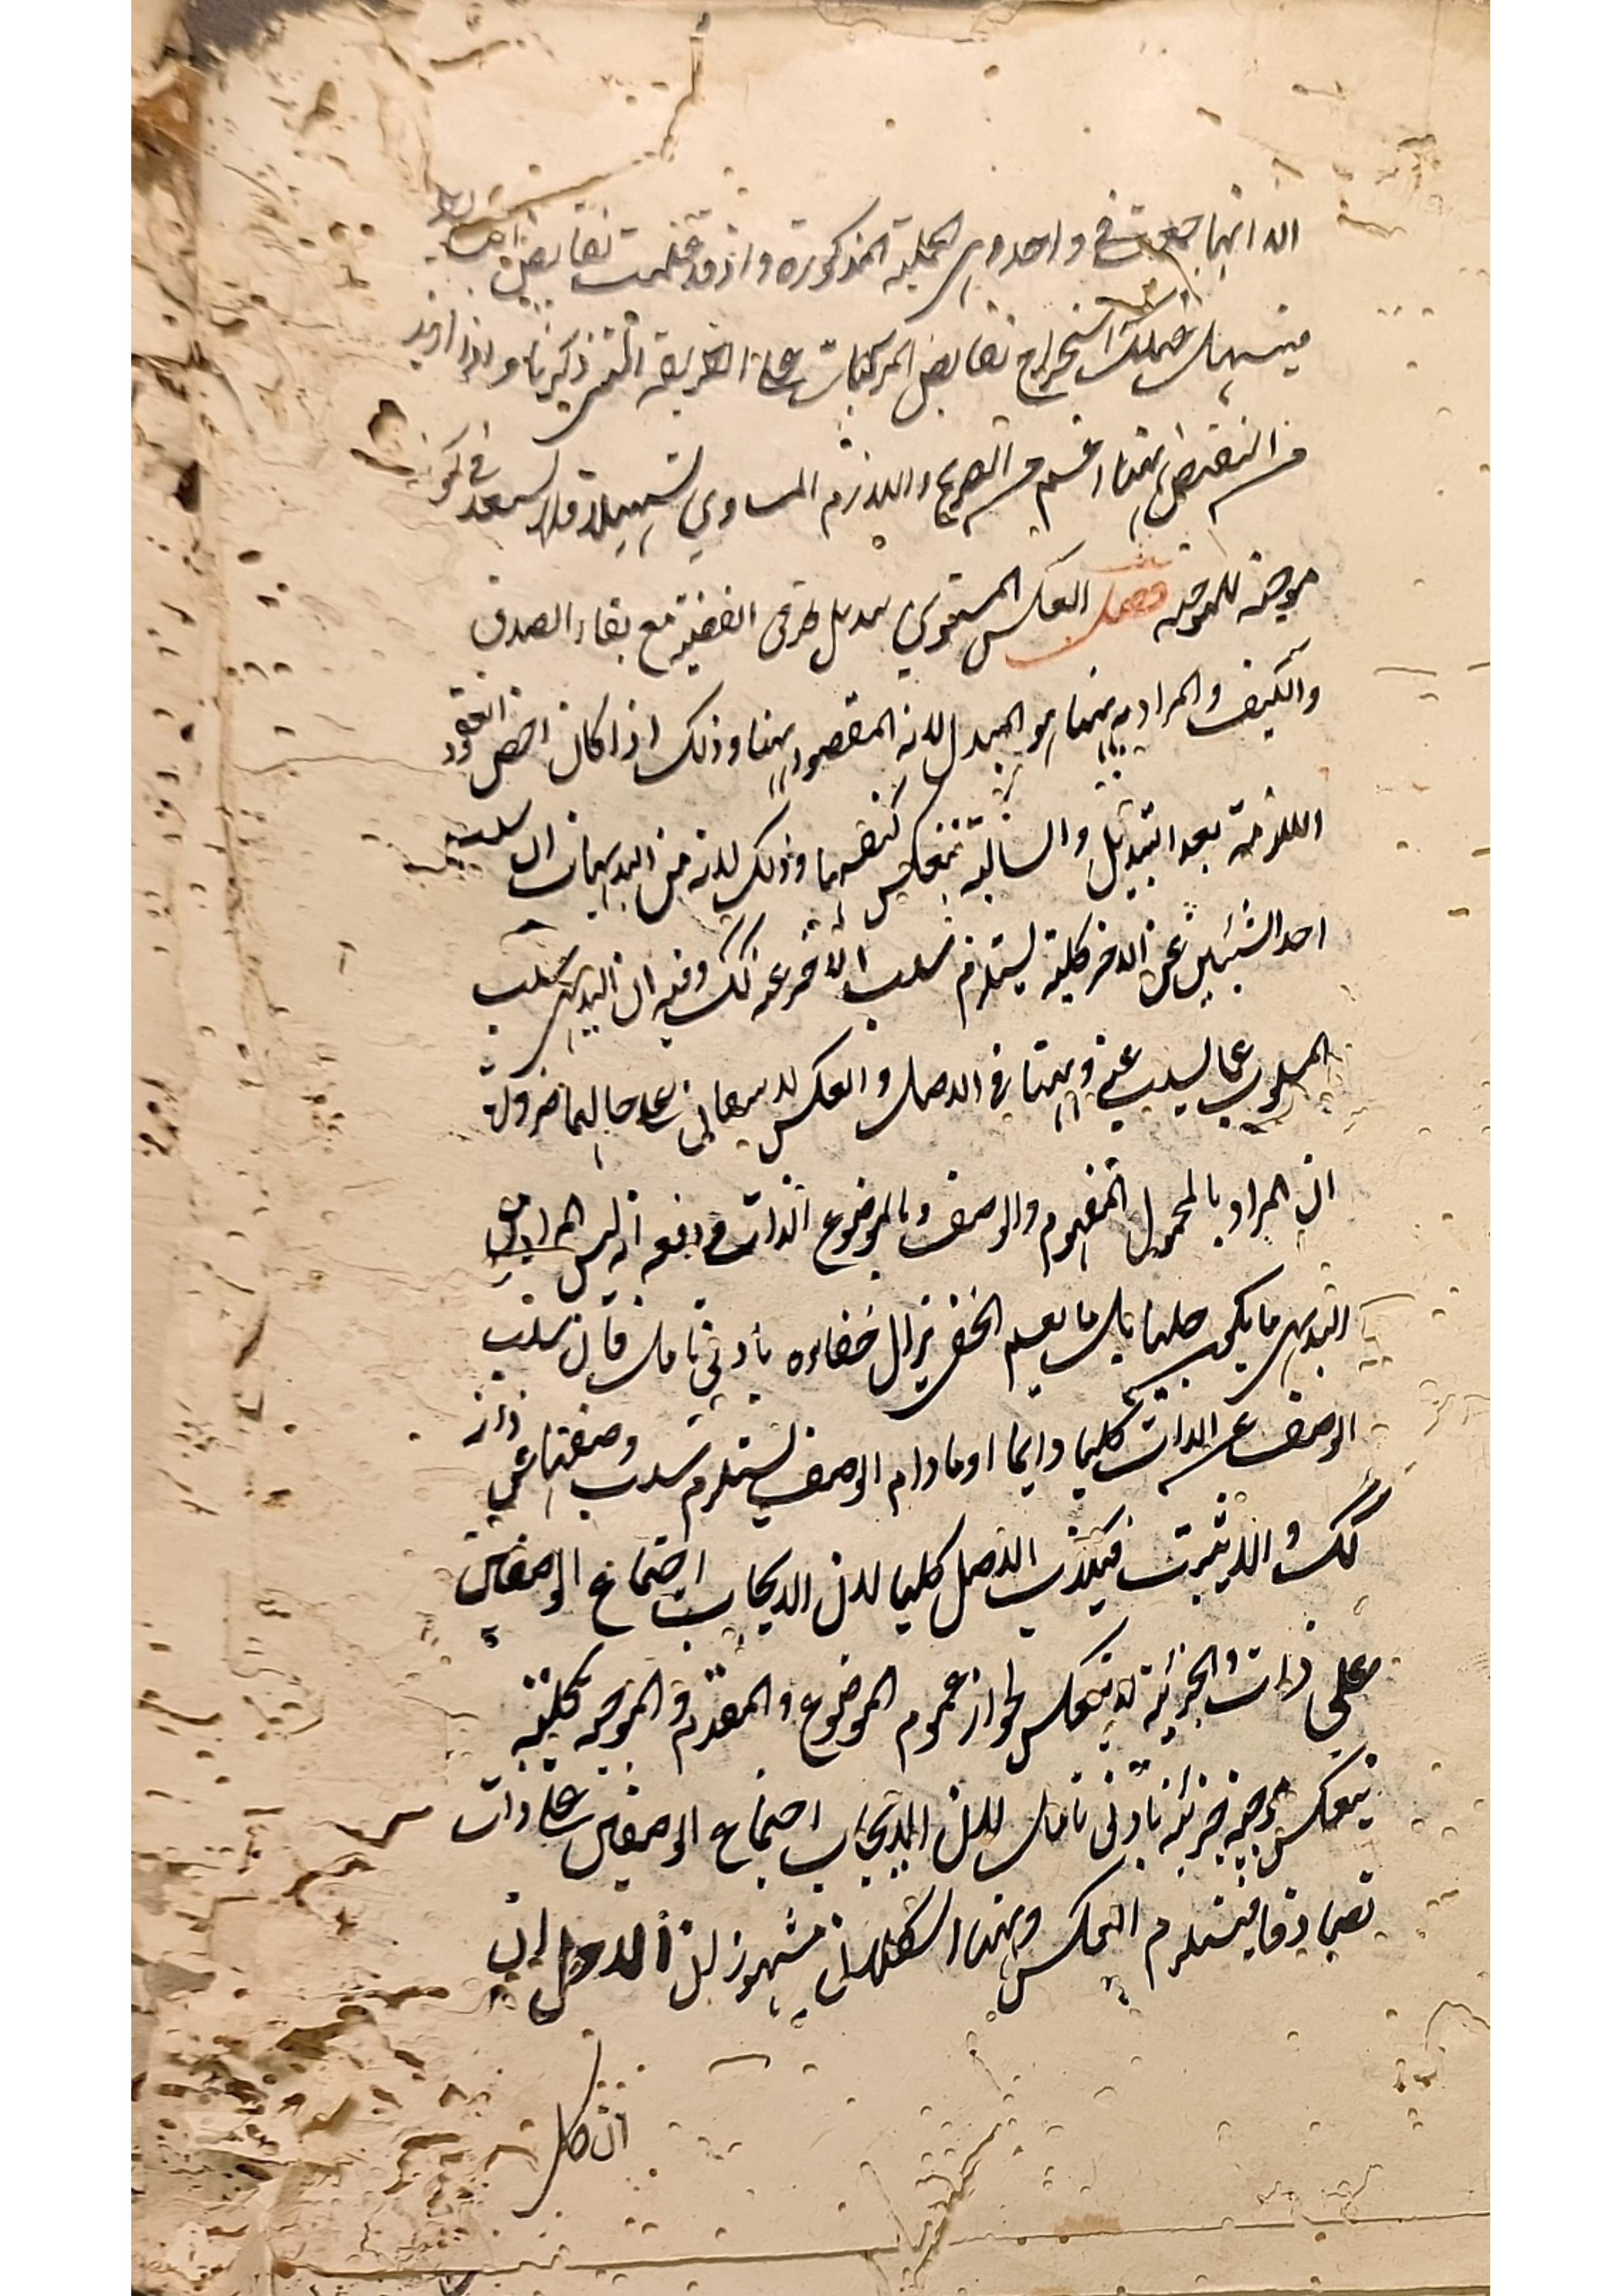 الا انها جمعت في واحد وهي الحملية المذكورة واذ قد علمت نقايض البسايط
فيسهل عليك استخراج نقايض المركبات على الطريقة التي ذكرنا واذا اريد
من النقيض ههنا اعم من الصريح واللازم المساوي تسهيلا فلا يبعد في كون
موجبة للموجبة فصل العكس المستوي تبديل طرفي القضية مع بقاء الصدق
والكيف والمراد به ههنا هو المبدل لانه المقصود ههنا وذلك اذا كان اخص القضود
اللازمة بعد التبديل والسالبة تنعكس كنفسها وذلك لانه من البديهيات ان سلب
احد الشيئين عن الاخر كلية يستلزم سلب الاخر عنه كك وفيه ان البديهي سلب
المسلوب عما يسلب عنه وههنا في الاصل والعكس لا يبقيان على حالهما ضرورة
ان المراد بالمحمول المفهوم والوصف وبالموضوع الذات ودفعه انه ليس المراد من
البديهي ما يكون جليا بل ما يعم الخفي يزال خفاءوه بادنى تامل فان سلب
الوصف عن الذات كليا دايما او ما دام الوصف يستلزم سلب وصفها عن ذات
كك والا لثبت فيكذب الاصل كليا لان الايجاب اجتماع الوصفين
على ذات والجزئية لا تنعكس لجواز عموم الموضوع والمقدم والموجبة كلية
تنعكس موجبة جزئية بادنى تامل لان الايجاب اجتماع الوصفين على ذات
تصادقا فيستلزم العكس وههنا اشكالان مشهوران الاول ان
ان كل